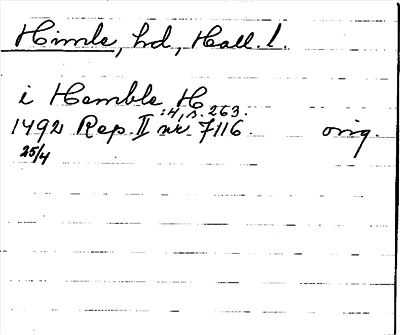 Himle, hd, Hall. l.
i Hemble H
:4, s. 263.
1492 Rep. II nr 7116. orig.
25/4